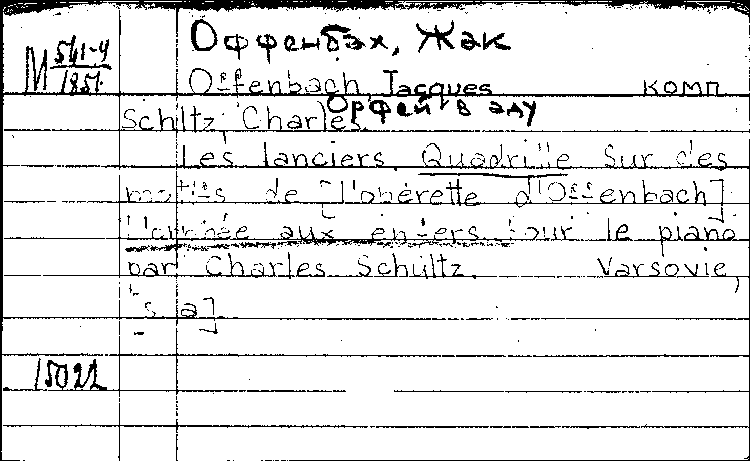 Оффенбах, Жак
М 561-4/1851
Offenbach, Jacques комп
Орфей в аду
Schltz, Charles
Les lanciers. Quadrille sur des
motifs de [l'opérette d'Offenbach]
L'arrivée aux enfers pour le piano
par Charles Schultz. Varsovie,
[s a].
15022